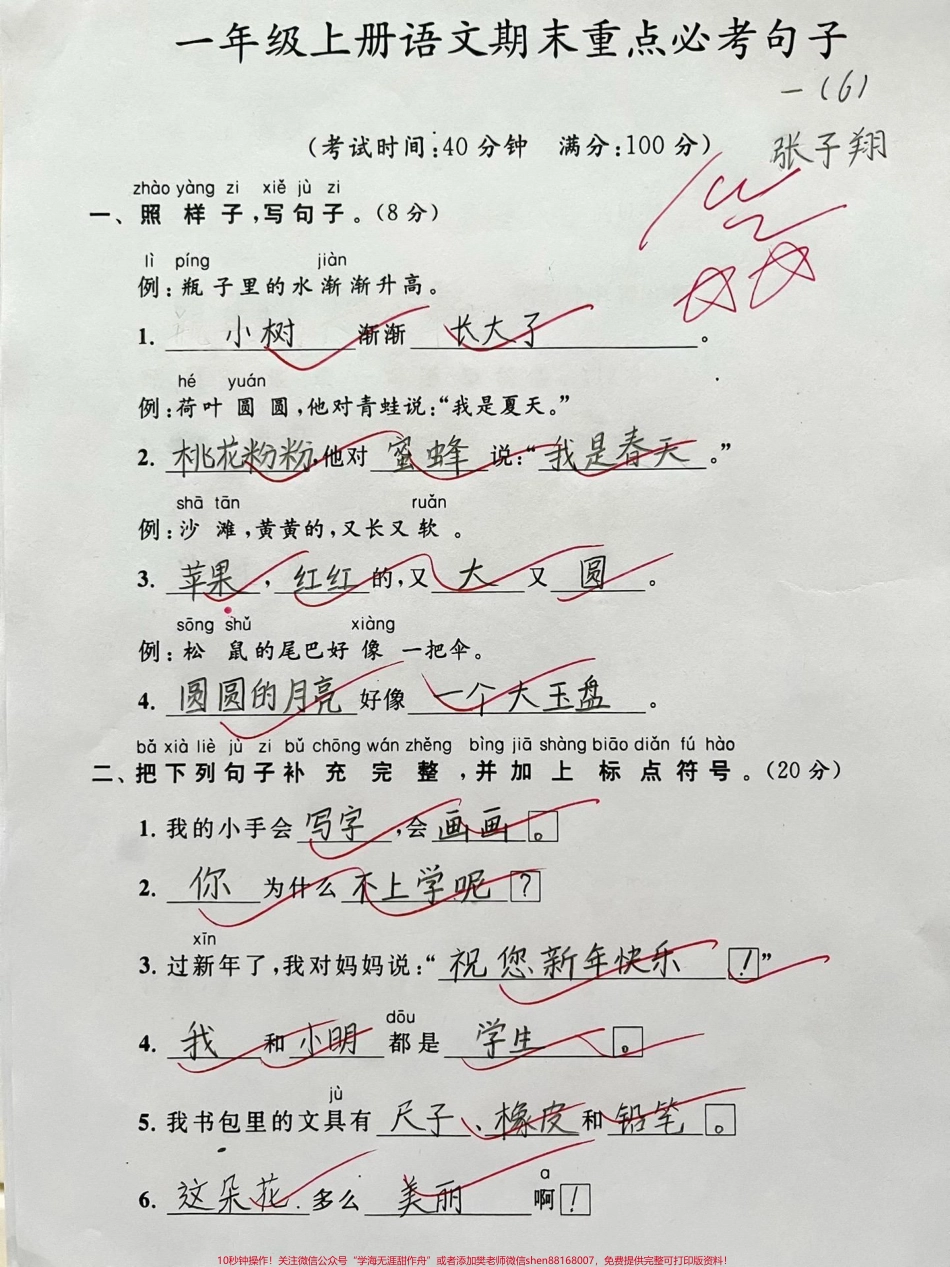 一年级上册语文期末重点必考句子
一(6)
(考试时间:40分钟 满分:100分)
张子翔
zhào yàng zi xiě jù zi
一、照样子,写句子。(8分)
lì píng jiàn
例:瓶子里的水渐渐升高。
1. 小树渐渐长大了。
hé yuán
例:荷叶圆圆,他对青蛙说:“我是夏天。”
2. 桃花粉粉,他对蜜蜂说:“我是春天。”
shā tān ruǎn
例:沙滩,黄黄的,又长又软。
3. 苹果,红红的,又大又圆。
sōng shǔ xiàng
例:松鼠的尾巴好像一把伞。
4. 圆圆的月亮好像一个大玉盘。
bǎ xià liè jù zi bǔ chōng wán zhěng bìng jiā shàng biāo diǎn fú hào
二、把下列句子补充完整,并加上标点符号。(20分)
1. 我的小手会写字,会画画。
2. 你为什么不上学呢?
xīn
3. 过新年了,我对妈妈说:“祝您新年快乐!”
dōu
4. 我和小明都是学生。
jù
5. 我书包里的文具有尺子、橡皮和铅笔。
a
6. 这朵花多么美丽啊!
10秒钟操作!关注微信公众号“学海无涯甜作舟”或者添加樊老师微信shen88168007,免费提供完整可打印版资料!